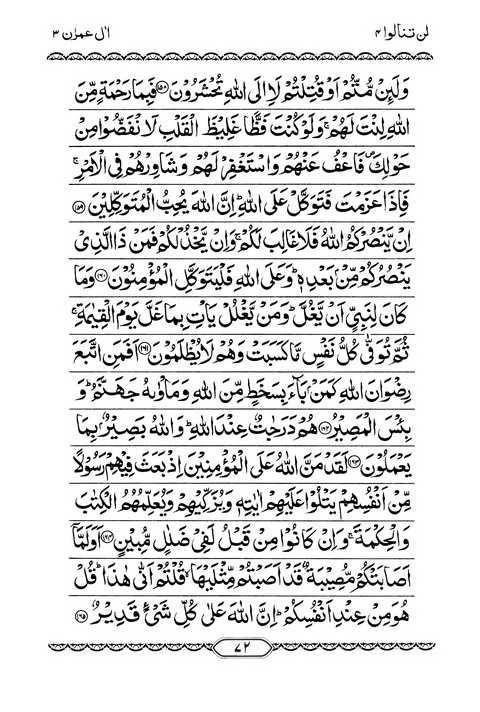 لن تنالوا ۴
اٰل عمرٰن ۳
وَلَئِنْ مُّتُّمْ اَوْ قُتِلْتُمْ لَاِالَی اللّٰهِ تُحْشَرُوْنَ ﴿۱۵۸﴾ فَبِمَا رَحْمَةٍ مِّنَ
اللّٰهِ لِنْتَ لَهُمْ ۚ وَلَوْ كُنْتَ فَظًّا غَلِیْظَ الْقَلْبِ لَا نْفَضُّوْا مِنْ
حَوْلِكَ ۪ فَاعْفُ عَنْهُمْ وَاسْتَغْفِرْ لَهُمْ وَشَاوِرْهُمْ فِی الْاَمْرِ ۚ
فَاِذَا عَزَمْتَ فَتَوَكَّلْ عَلَی اللّٰهِ ؕ اِنَّ اللّٰهَ یُحِبُّ الْمُتَوَكِّلِیْنَ ﴿۱۵۹﴾
اِنْ یَّنْصُرْكُمُ اللّٰهُ فَلَا غَالِبَ لَكُمْ ۚ وَاِنْ یَّخْذُلْكُمْ فَمَنْ ذَا الَّذِیْ
یَنْصُرُكُمْ مِّنْۢ بَعْدِهٖ ؕ وَعَلَی اللّٰهِ فَلْیَتَوَكَّلِ الْمُؤْمِنُوْنَ ﴿۱۶۰﴾ وَمَا
كَانَ لِنَبِیٍّ اَنْ یَّغُلَّ ؕ وَمَنْ یَّغْلُلْ یَاْتِ بِمَا غَلَّ یَوْمَ الْقِیٰمَةِ ۚ
ثُمَّ تُوَفّٰی كُلُّ نَفْسٍ مَّا كَسَبَتْ وَهُمْ لَا یُظْلَمُوْنَ ﴿۱۶۱﴾ اَفَمَنِ اتَّبَعَ
رِضْوَانَ اللّٰهِ كَمَنْۢ بَآءَ بِسَخَطٍ مِّنَ اللّٰهِ وَمَاْوٰىهُ جَهَنَّمُ ؕ وَ
بِئْسَ الْمَصِیْرُ ﴿۱۶۲﴾ هُمْ دَرَجٰتٌ عِنْدَ اللّٰهِ ؕ وَاللّٰهُ بَصِیْرٌۢ بِمَا
یَعْمَلُوْنَ ﴿۱۶۳﴾ لَقَدْ مَنَّ اللّٰهُ عَلَی الْمُؤْمِنِیْنَ اِذْ بَعَثَ فِیْهِمْ رَسُوْلًا
مِّنْ اَنْفُسِهِمْ یَتْلُوْا عَلَیْهِمْ اٰیٰتِهٖ وَیُزَكِّیْهِمْ وَیُعَلِّمُهُمُ الْكِتٰبَ
وَالْحِكْمَةَ ۚ وَاِنْ كَانُوْا مِنْ قَبْلُ لَفِیْ ضَلٰلٍ مُّبِیْنٍ ﴿۱۶۴﴾ اَوَلَمَّاۤ
اَصَابَتْكُمْ مُّصِیْبَةٌ قَدْ اَصَبْتُمْ مِّثْلَیْهَا ۙ قُلْتُمْ اَنّٰی هٰذَا ؕ قُلْ
هُوَ مِنْ عِنْدِ اَنْفُسِكُمْ ؕ اِنَّ اللّٰهَ عَلٰی كُلِّ شَیْءٍ قَدِیْرٌ ﴿۱۶۵﴾
۷۲